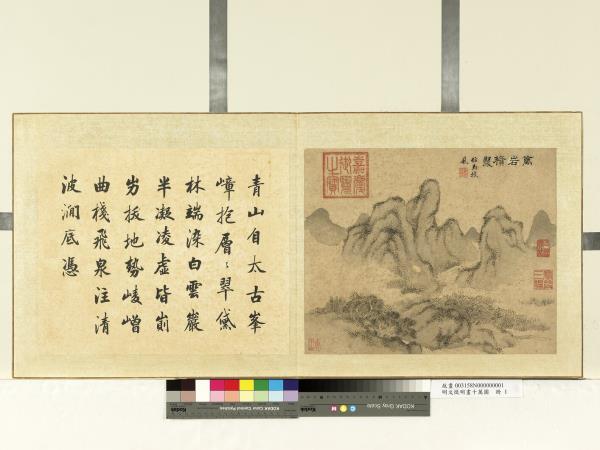 青山自太古峯
嶂抱層〻翠黛
林端染白雲巖
半凝凌虛皆崱
屴拔地勢崚嶒
曲棧飛泉注清
波澗底憑
萬岩積翠
嘉慶御覽之寶
KODAK Color Control Patches
KODAK Gray Scale
故畫 003158N000000001
明文從明畫十萬圖 冊 1